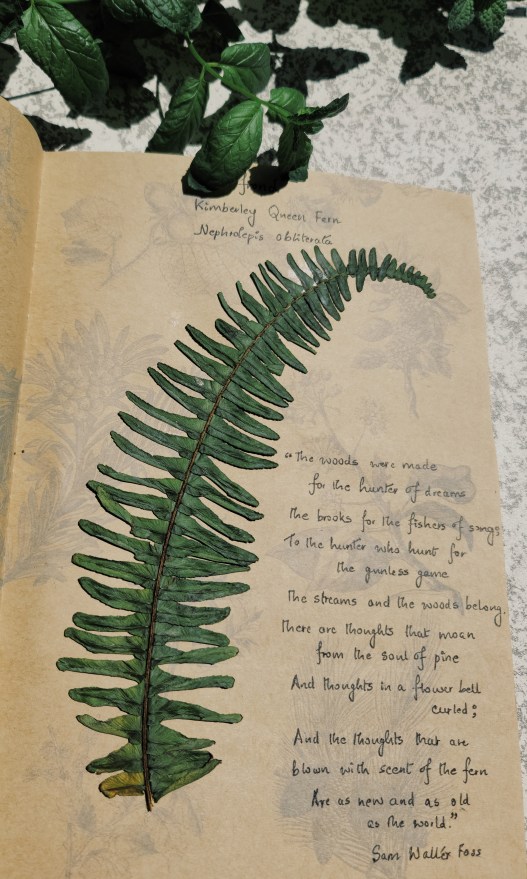 Kimberley Queen Fern
Nephrolepis obliterata
"The woods were made
for the hunter of dreams
The brooks for the fishers of song;
To the hunter who hunt for
the gunless game
The streams and the woods belong.
There are thoughts that moan
from the soul of pine
And thoughts in a flower bell
curled;
And the thoughts that are
blown with scent of the fern
Are as new and as old
as the world."
Sam Walter Foss